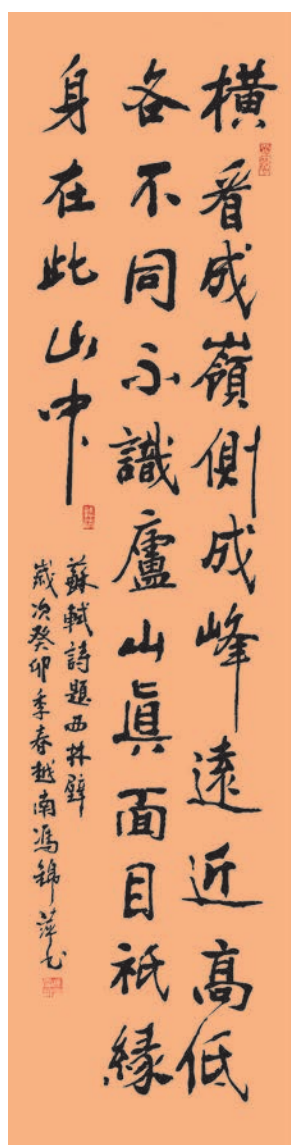 橫看成嶺側成峰遠近高低
各不同不識廬山眞面目袛緣
身在此山中
蘇軾詩題西林壁
歲次癸卯季春越南馮錦萍書